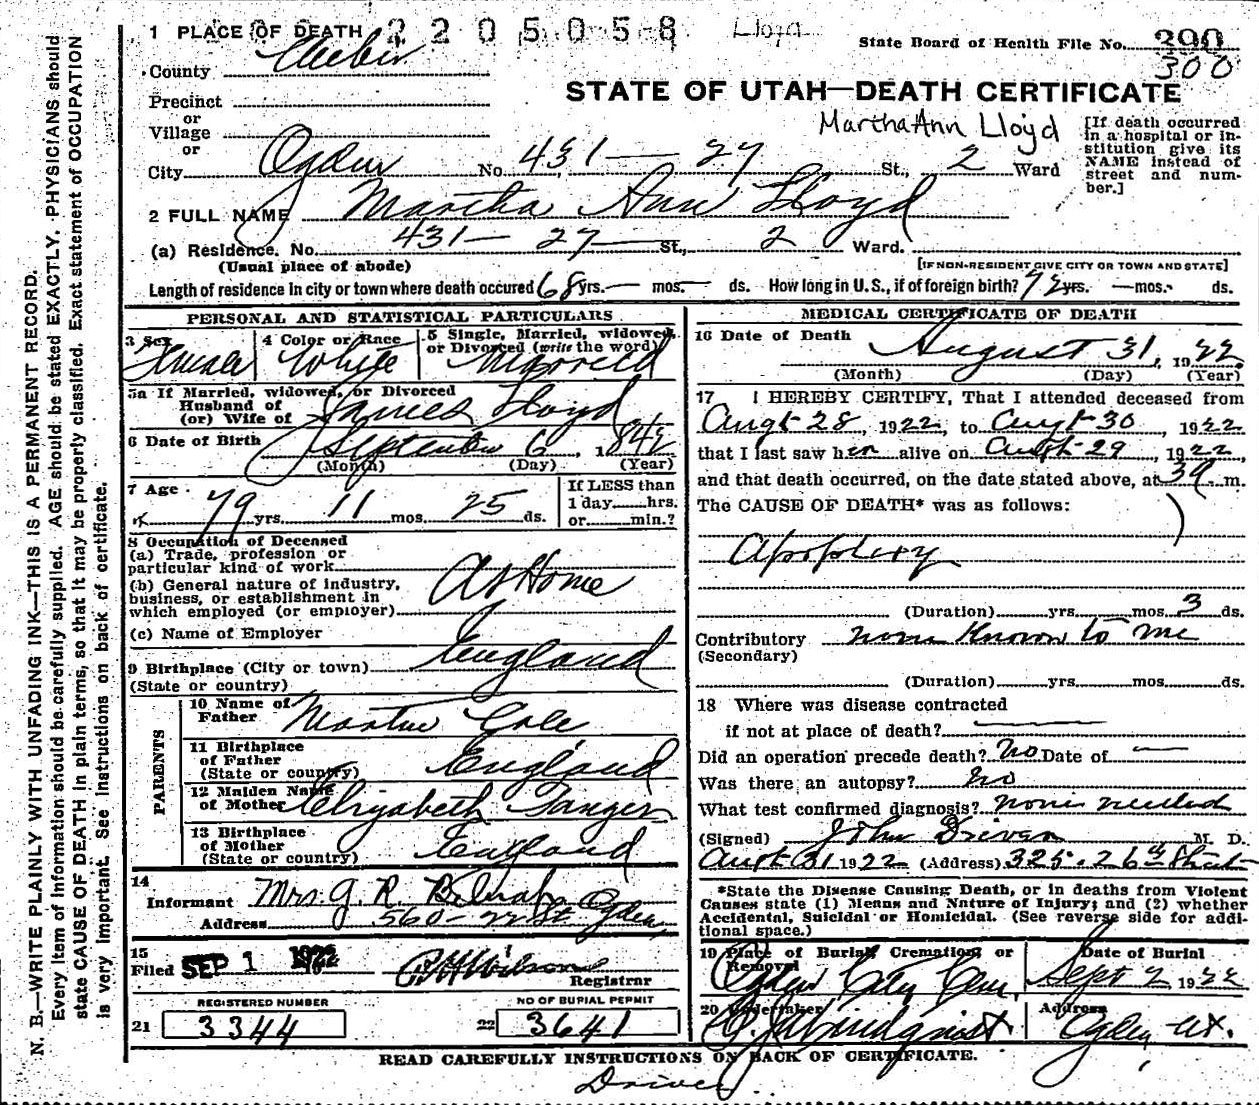 1 PLACE OF DEATH 2205058 Lloyd
State Board of Health File No. 390
300
County Weber
STATE OF UTAH—DEATH CERTIFICATE
Precinct
or
Village
or
Martha Ann Lloyd
[If death occurred in a hospital or institution give its NAME instead of street and number.]
City Ogden No. 431 — 27 St., 2 Ward
2 FULL NAME Martha Ann Lloyd
(a) Residence. No. 431 — 27 St., 2 Ward.
(Usual place of abode) [IF NON-RESIDENT GIVE CITY OR TOWN AND STATE]
Length of residence in city or town where death occured 68 yrs. — mos. — ds. How long in U. S., if of foreign birth? yrs. — mos. ds.
PERSONAL AND STATISTICAL PARTICULARS
3 Sex Female
4 Color or Race White
5 Single, Married, widowed, or Divorced (write the word) Married
5a If Married, widowed, or Divorced
Husband of
(or) Wife of James Lloyd
6 Date of Birth September 6, 1842
(Month) (Day) (Year)
7 Age 79 yrs. 11 mos. 25 ds.
If LESS than
1 day hrs.
or min.?
8 Occupation of Deceased
(a) Trade, profession or
particular kind of work
(b) General nature of industry,
business, or establishment in
which employed (or employer)
At Home
(c) Name of Employer
9 Birthplace (City or town) England
(State or country)
PARENTS
10 Name of Father Martin Cole
11 Birthplace of Father England
(State or country)
12 Maiden Name of Mother Elizabeth
13 Birthplace of Mother England
(State or country)
14
Informant Mrs. J. R.
Address 560 - 22 St Ogden
15
Filed SEP 1 1922 Wilson
Registrar
REGISTERED NUMBER
21 3344
NO OF BURIAL PERMIT
22 3641
MEDICAL CERTIFICATE OF DEATH
16 Date of Death August 31, 1922
(Month) (Day) (Year)
17 I HEREBY CERTIFY, That I attended deceased from
Augt 28, 1922, to Augt 30, 1922
that I last saw her alive on Augt 29, 1922,
and that death occurred, on the date stated above, at m.
The CAUSE OF DEATH* was as follows:
Apoplexy
(Duration) yrs. mos. 3 ds.
Contributory none known to me
(Secondary)
(Duration) yrs. mos. ds.
18 Where was disease contracted
if not at place of death? —
Did an operation precede death? No Date of —
Was there an autopsy? No
What test confirmed diagnosis? none needed
(Signed) John Driver M. D.
Augt 31 1922 (Address) 325 - 26th Street
*State the Disease Causing Death, or in deaths from Violent
Causes state (1) Means and Nature of Injury; and (2) whether
Accidental, Suicidal or Homicidal. (See reverse side for additional space.)
19 Place of Burial, Cremation, or Removal
Ogden City Cem.
Date of Burial
Sept 2 1922
20 Undertaker Lindquist
Address Ogden Ut.
READ CAREFULLY INSTRUCTIONS ON BACK OF CERTIFICATE.
Driver
N. B.—WRITE PLAINLY WITH UNFADING INK—THIS IS A PERMANENT RECORD.
Every item of information should be carefully supplied. AGE should be stated EXACTLY. PHYSICIANS should
state CAUSE OF DEATH in plain terms, so that it may be properly classified. Exact statement of OCCUPATION
is very important. See instructions on back of certificate.